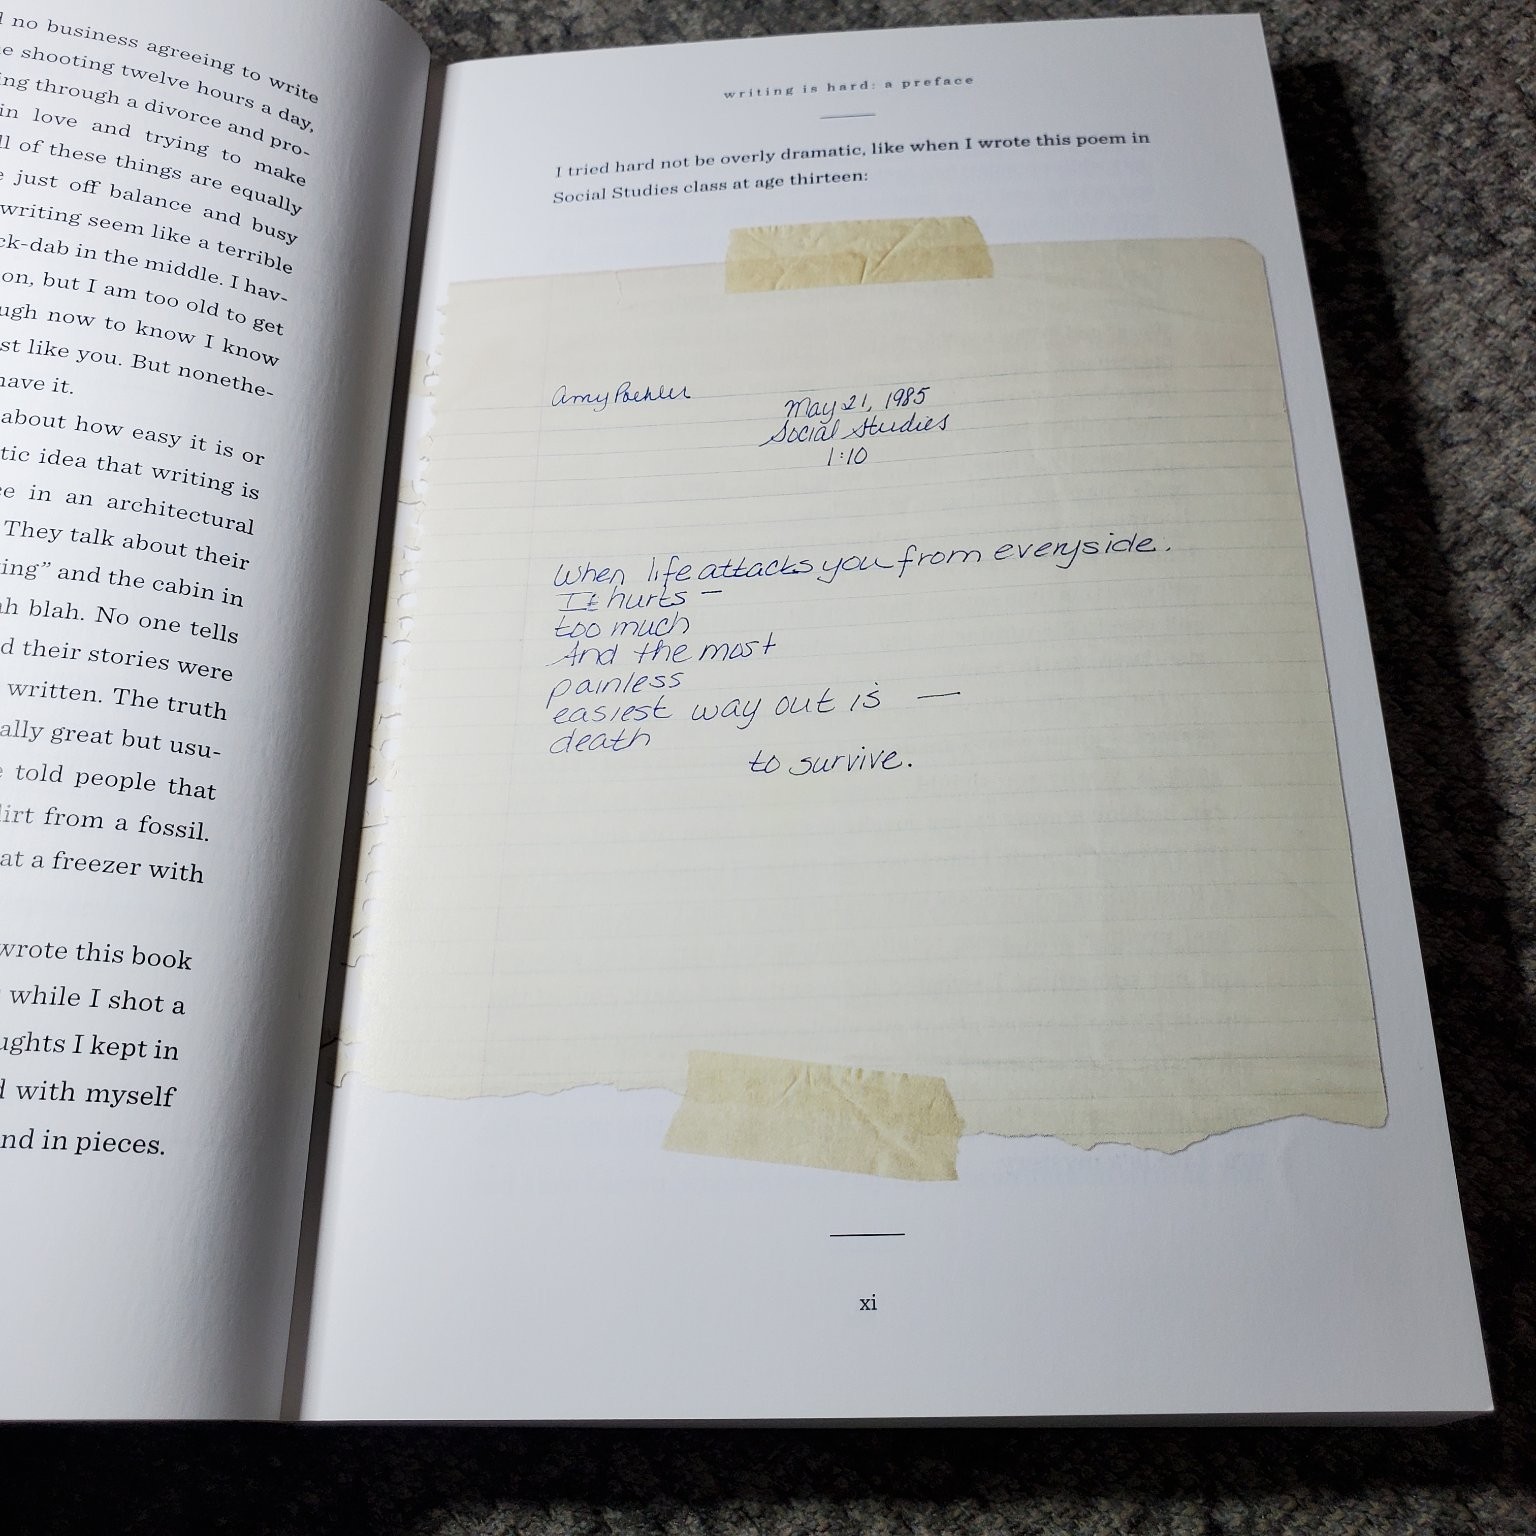 no business agreeing to write
shooting twelve hours a day,
through a divorce and pro-
in love and trying to make
of these things are equally
just off balance and busy
writing seem like a terrible
in the middle. I hav-
on, but I am too old to get
now to know I know
like you. But nonethe-
have it.
about how easy it is or
idea that writing is
in an architectural
They talk about their
and the cabin in
blah. No one tells
their stories were
written. The truth
great but usu-
told people that
from a fossil.
at a freezer with
wrote this book
while I shot a
I kept in
with myself
in pieces.
writing is hard: a preface
I tried hard not be overly dramatic, like when I wrote this poem in
Social Studies class at age thirteen:
Amy Poehler
May 21, 1985
Social Studies
1:10
When life attacks you from everyside.
It hurts —
too much
And the most
painless
easiest way out is —
death
to survive.
xi